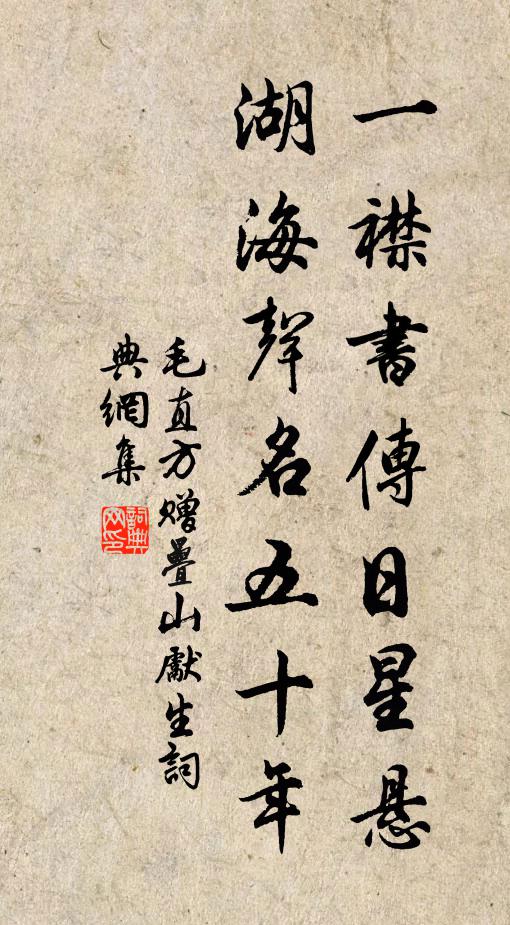 一襟書傳日星悬
湖海聲名五十年
毛直方赠疊山獻生詞
典網集
詞典網印